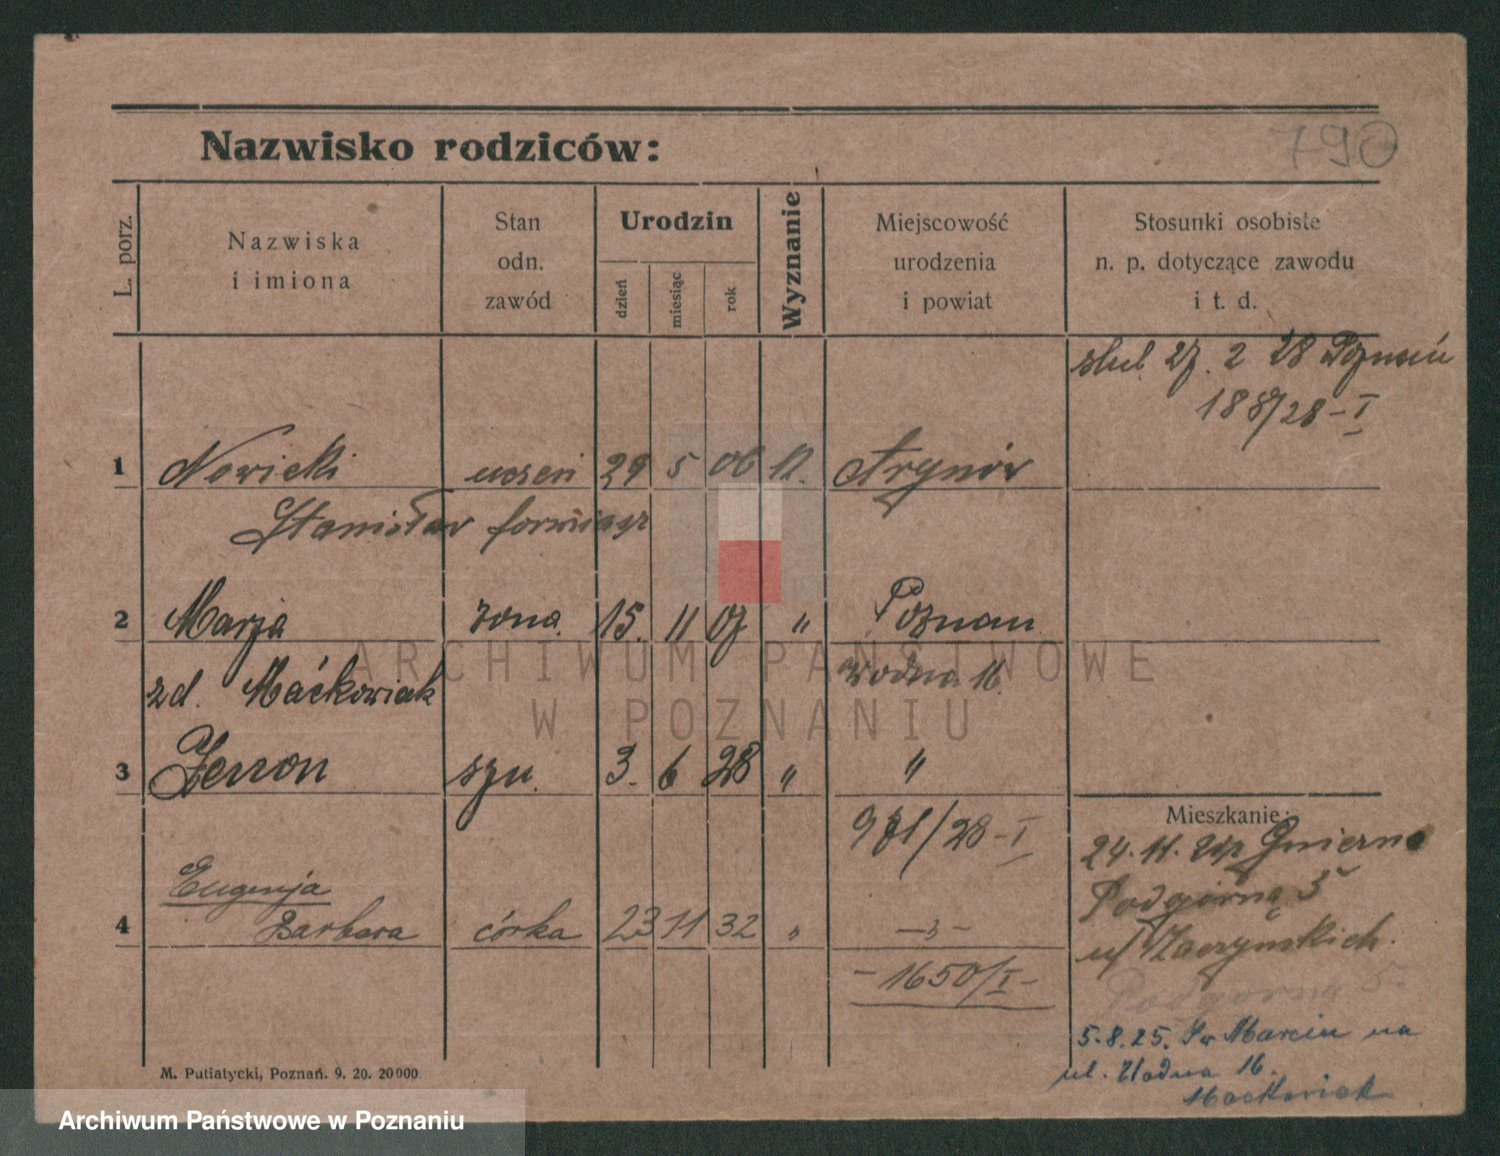 790
Nazwisko rodziców:
L. porz.
Nazwiska
i imiona
Stan
odn.
zawód
Urodzin
dzień
miesiąc
rok
Wyznanie
Miejscowość
urodzenia
i powiat
Stosunki osobiste
n. p. dotyczące zawodu
i t. d.
ślub 27. 2 28 Poznań
188/28-I
1 Nowicki uczeń 29 5 06 K.
Stanisław
2 Marja żona 15. 11 07 " Poznań
zd. Maćkowiak Wodna 16.
3 Zenon syn. 3. 6 28 " "
971/28-I
Mieszkanie:
24. 11. Gniezno
Podgórna 5
4 Eugenja
Barbara córka 23 11 32 " -"-
u/
-1650/I-
Podgórna 5.
5.8.25. Św Marcin na
ul. Wodna 16.
Maćkowiak
M. Putiatycki, Poznań. 9. 20. 20000
ARCHIWUM PAŃSTWOWE
W POZNANIU
Archiwum Państwowe w Poznaniu